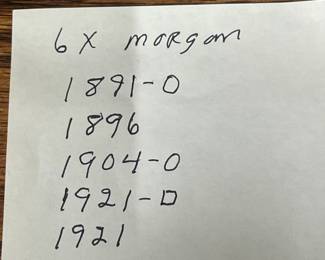 6 X morgan
1891-O
1896
1904-O
1921-D
1921